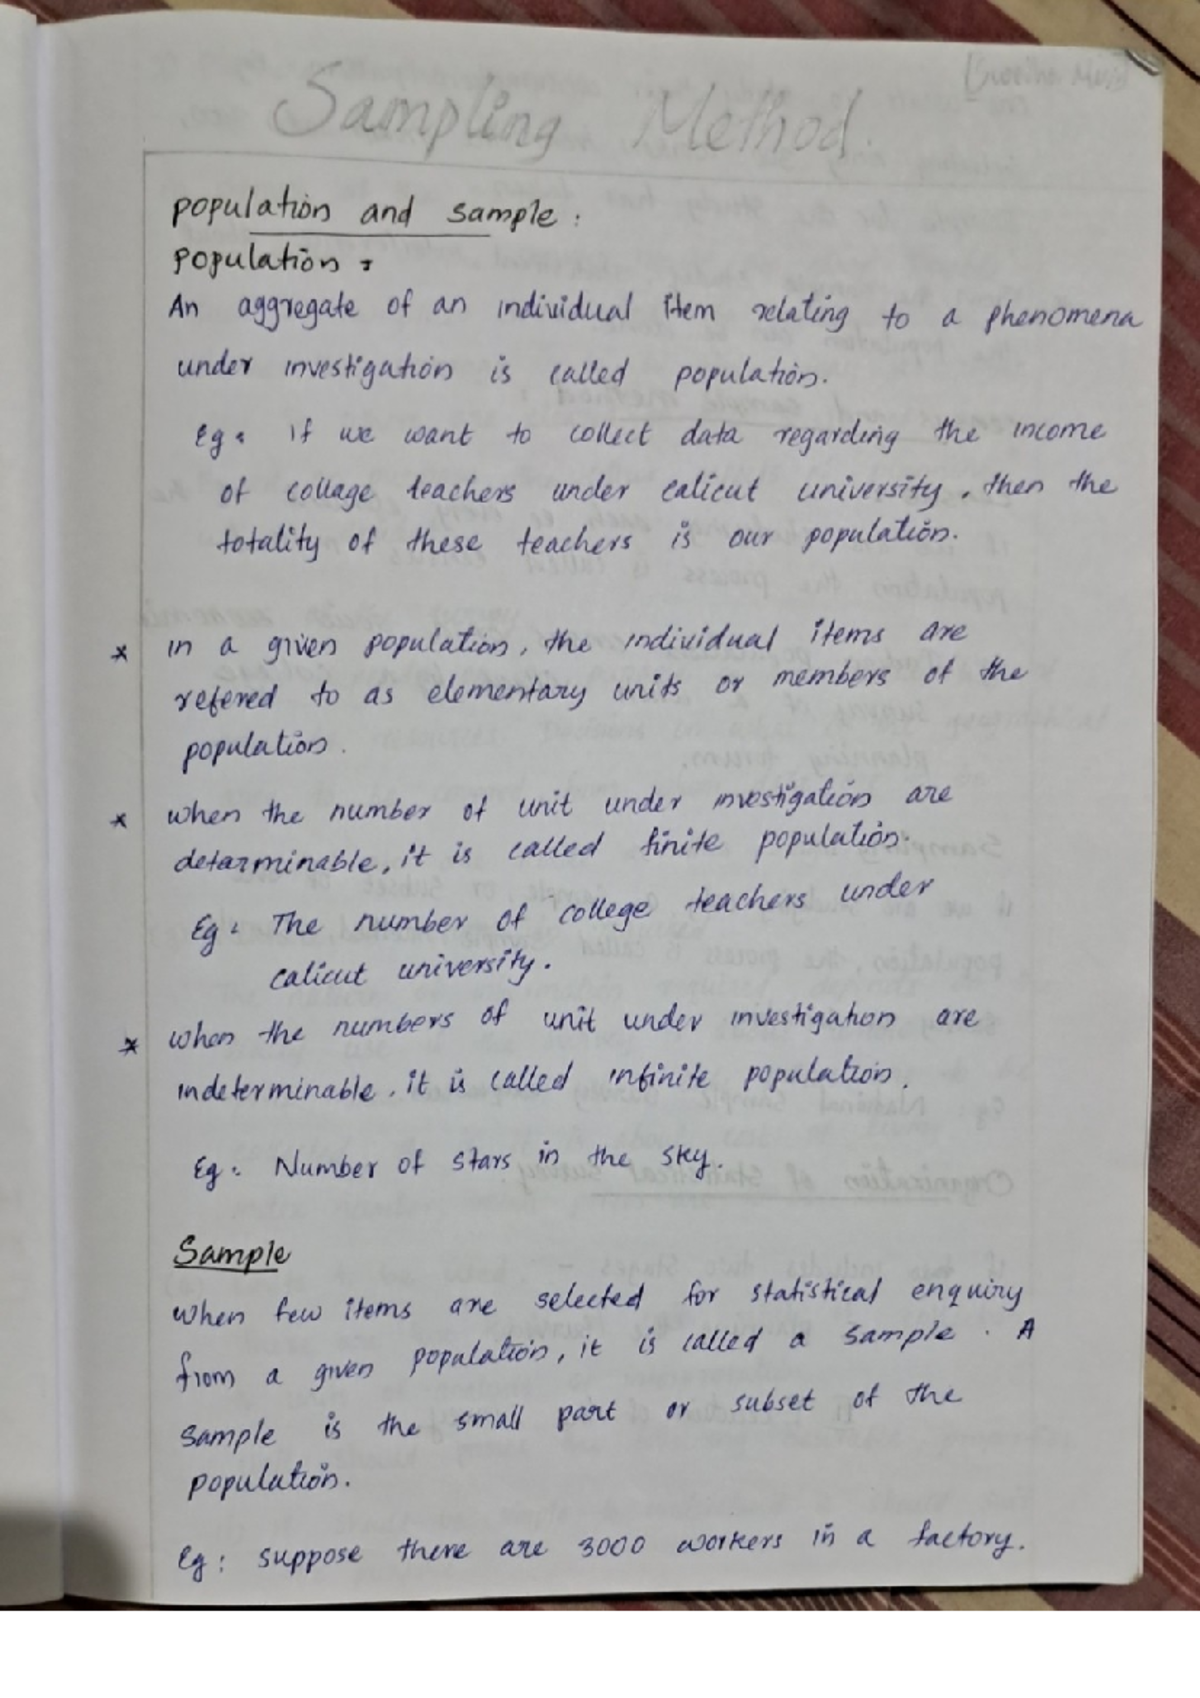 Sampling Method.
population and sample :
population :
An aggregate of an individual item relating to a phenomena
under investigation is called population.
Eg : if we want to collect data regarding the income
of collage teachers under calicut university, then the
totality of these teachers is our population.
* in a given population, the individual items are
refered to as elementary units or members of the
population.
* when the number of unit under investigation are
determinable, it is called finite population.
Eg : The number of college teachers under
calicut university.
* when the numbers of unit under investigation are
indeterminable, it is called infinite population.
Eg : Number of stars in the sky.
Sample
when few items are selected for statistical enquiry
from a given population, it is called a sample. A
sample is the small part or subset of the
population.
Eg : suppose there are 3000 workers in a factory.